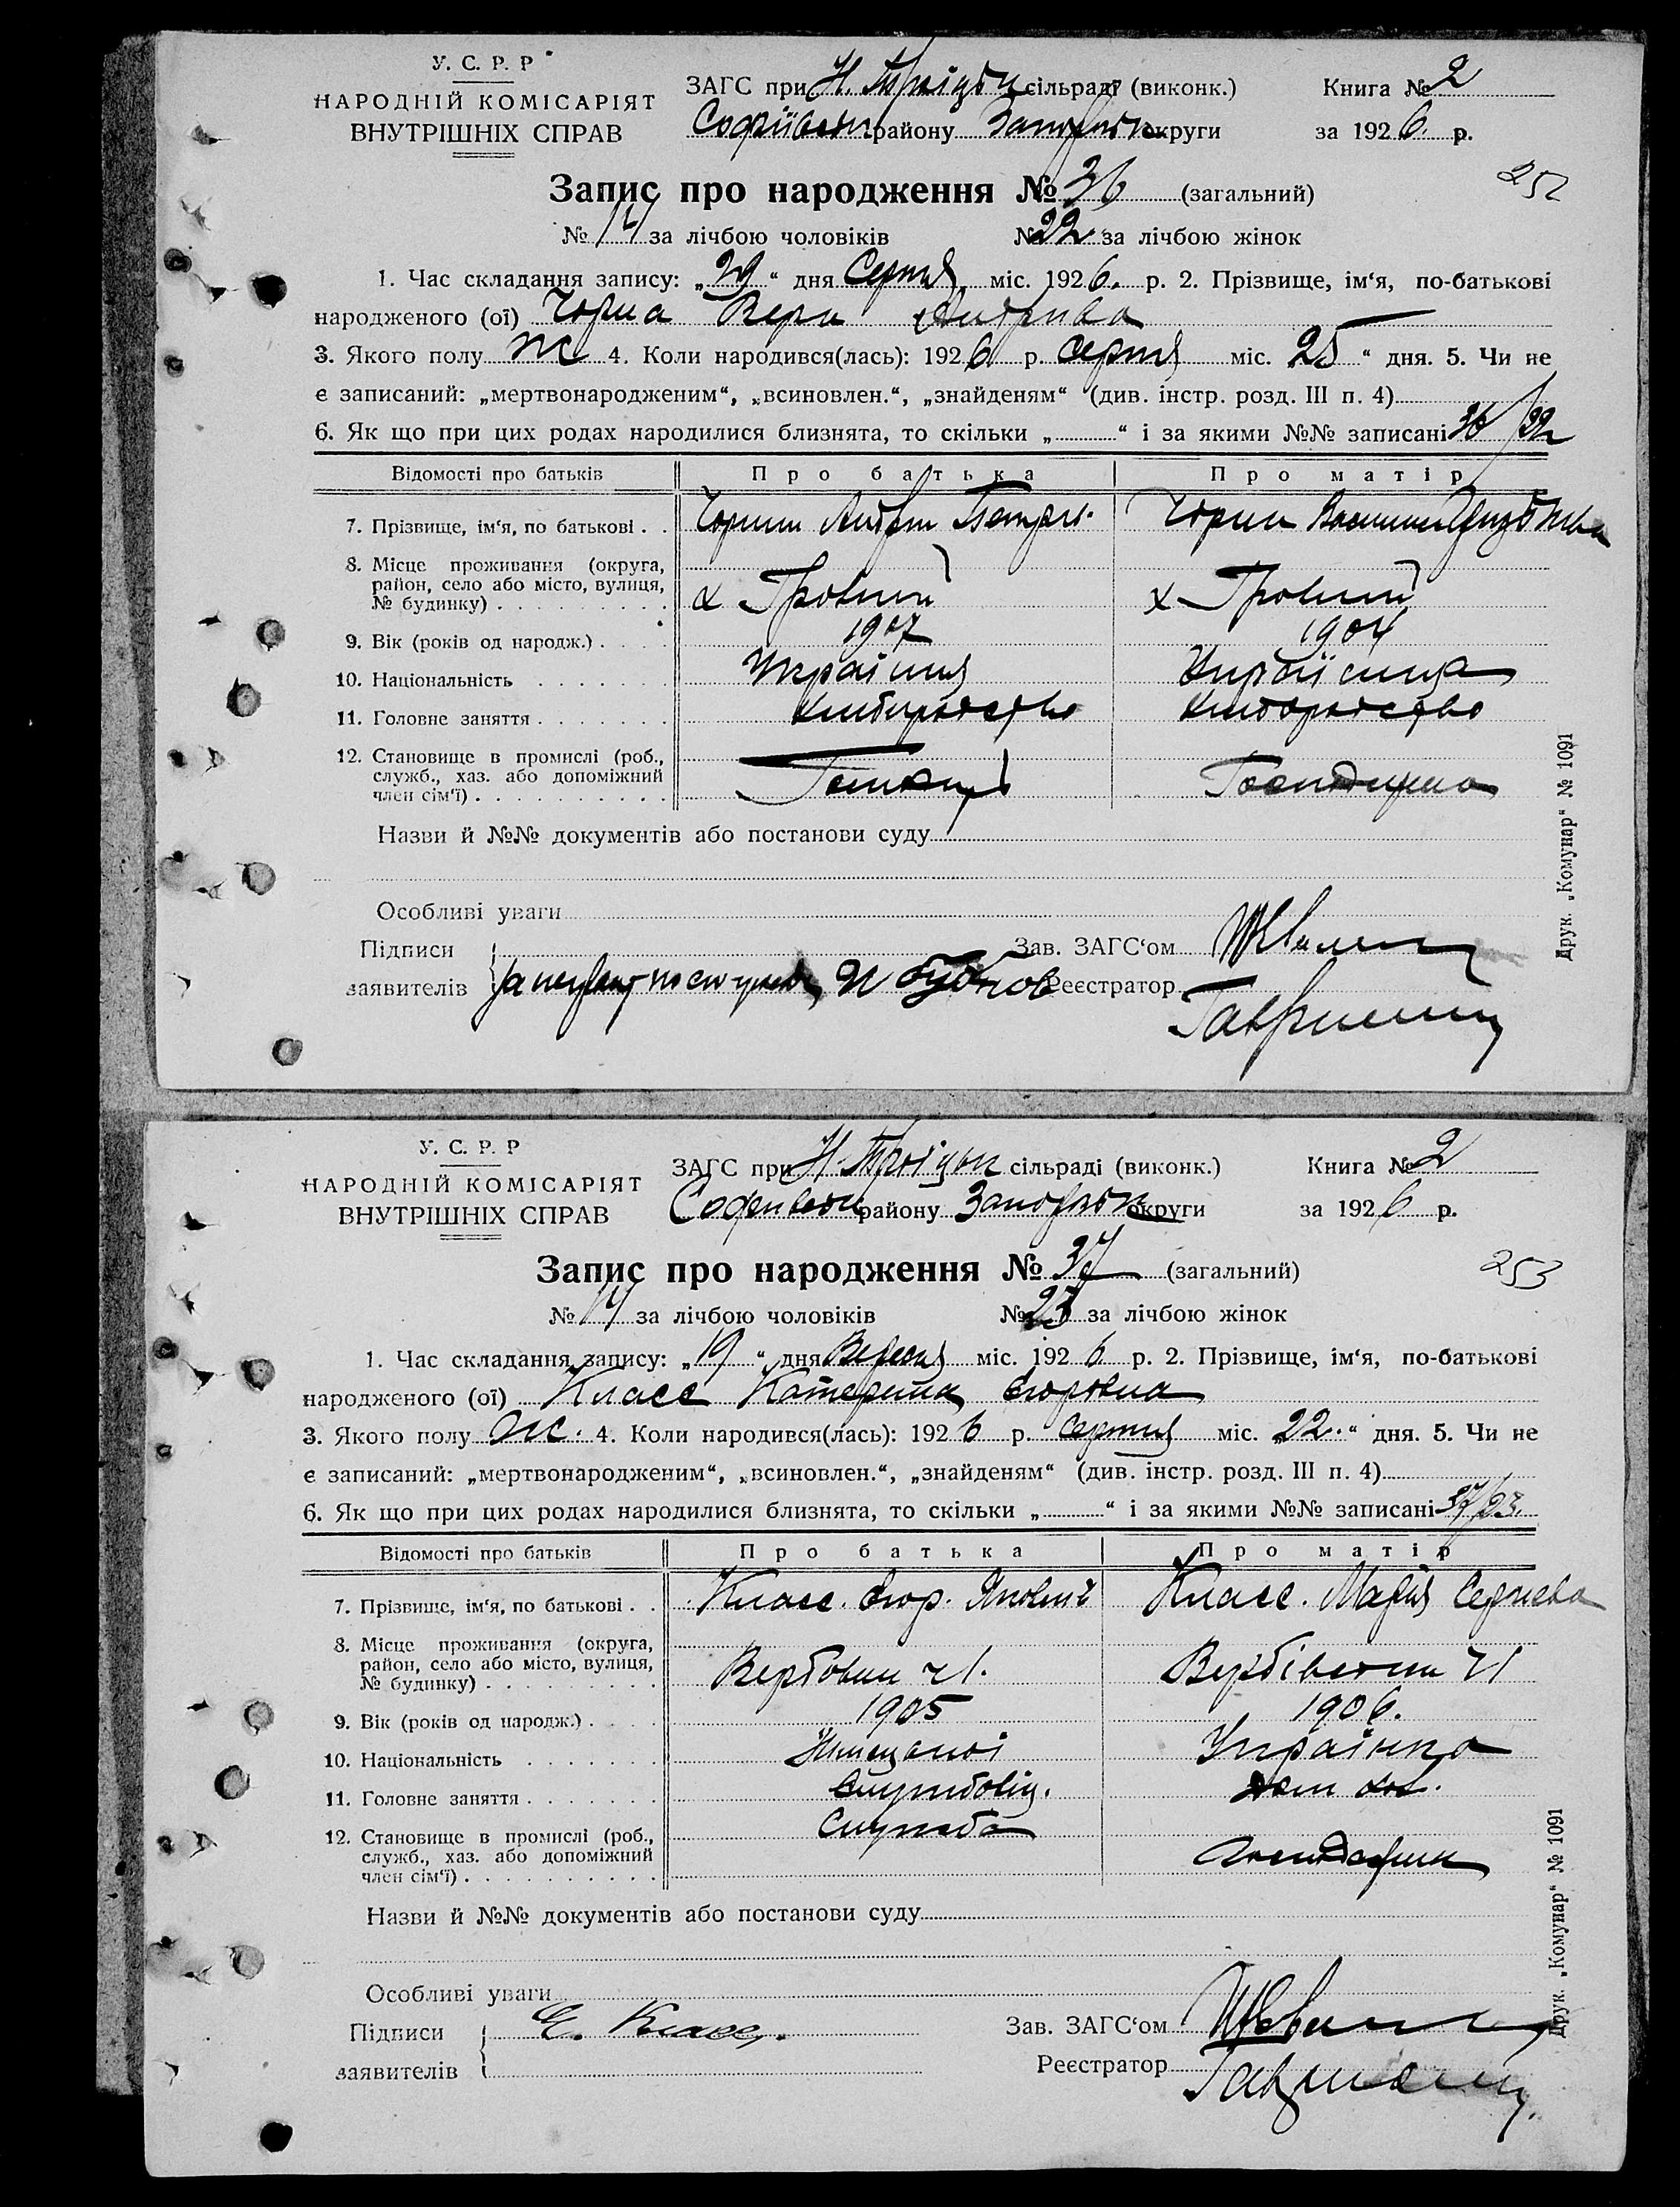 У. С. Р. Р
НАРОДНІЙ КОМІСАРІЯТ
ВНУТРІШНІХ СПРАВ
ЗАГС при Н. Троіцьк сільраді (виконк.) Книга № 2
Софіївськ району Запоріж округи за 1926 р.
252
Запис про народження № 36 (загальний)
№ 14 за лічбою чоловіків № 22 за лічбою жінок
1. Час складання запису: „29“ дня Серпня міс. 1926. р. 2. Прізвище, ім‘я, по-батькові
народженого (ої) Чорна Вера
3. Якого полу ж 4. Коли народився(лась): 1926 р. серпня міс. 25 “ дня. 5. Чи не
є записаний: „мертвонародженим“, „всиновлен.“, „знайденям“ (див. інстр. розд. III п. 4)
6. Як що при цих родах народилися близнята, то скільки „ “ і за якими №№ записані 36/22
Відомості про батьків Про батька Про матір
7. Прізвище, ім‘я, по батькові . . Чорний Андрій Чорна
8. Місце проживання (округа,
район, село або місто, вулиця,
№ будинку) . . . . . . . . . х
9. Вік (років од народж.) . . . . 1907 1904
10. Національність . . . . . . . Українця Українца
11. Головне заняття . . . . . . . хлиборобство хлиборобство
12. Становище в промислі (роб.,
служб., хаз. або допоміжний
член сім‘ї) . . . . . . . . . .
Назви й №№ документів або постанови суду
Особливі уваги
Підписи
заявителів
Зав. ЗАГС‘ом
Реєстратор
Друк. „Комунар“ № 1091
У. С. Р. Р
НАРОДНІЙ КОМІСАРІЯТ
ВНУТРІШНІХ СПРАВ
ЗАГС при Н. Троіцьк сільраді (виконк.) Книга № 2
Софиевськ району Запоріж округи за 1926 р.
253
Запис про народження № 37 (загальний)
№ 14 за лічбою чоловіків № 23 за лічбою жінок
1. Час складання запису: „19“ дня Вересня міс. 1926 р. 2. Прізвище, ім‘я, по-батькові
народженого (ої) Класс Катерина Єгоровна
3. Якого полу ж. 4. Коли народився(лась): 1926 р. серпня міс. „22.“ дня. 5. Чи не
є записаний: „мертвонародженим“, „всиновлен.“, „знайденям“ (див. інстр. розд. III п. 4)
6. Як що при цих родах народилися близнята, то скільки „ “ і за якими №№ записані 37/23.
Відомості про батьків Про батька Про матір
7. Прізвище, ім‘я, по батькові . . Класс. Єгор. Якович Класс. Марія Сергиева
8. Місце проживання (округа,
район, село або місто, вулиця,
№ будинку) . . . . . . . . .
9. Вік (років од народж.) . . . . 1905 1906.
10. Національність . . . . . . . Українка
11. Головне заняття . . . . . . . Службовець.
12. Становище в промислі (роб., Служба
служб., хаз. або допоміжний
член сім‘ї) . . . . . . . . . .
Назви й №№ документів або постанови суду
Особливі уваги
Підписи Е. Класс.
заявителів
Зав. ЗАГС‘ом
Реєстратор
Друк. „Комунар“ № 1091